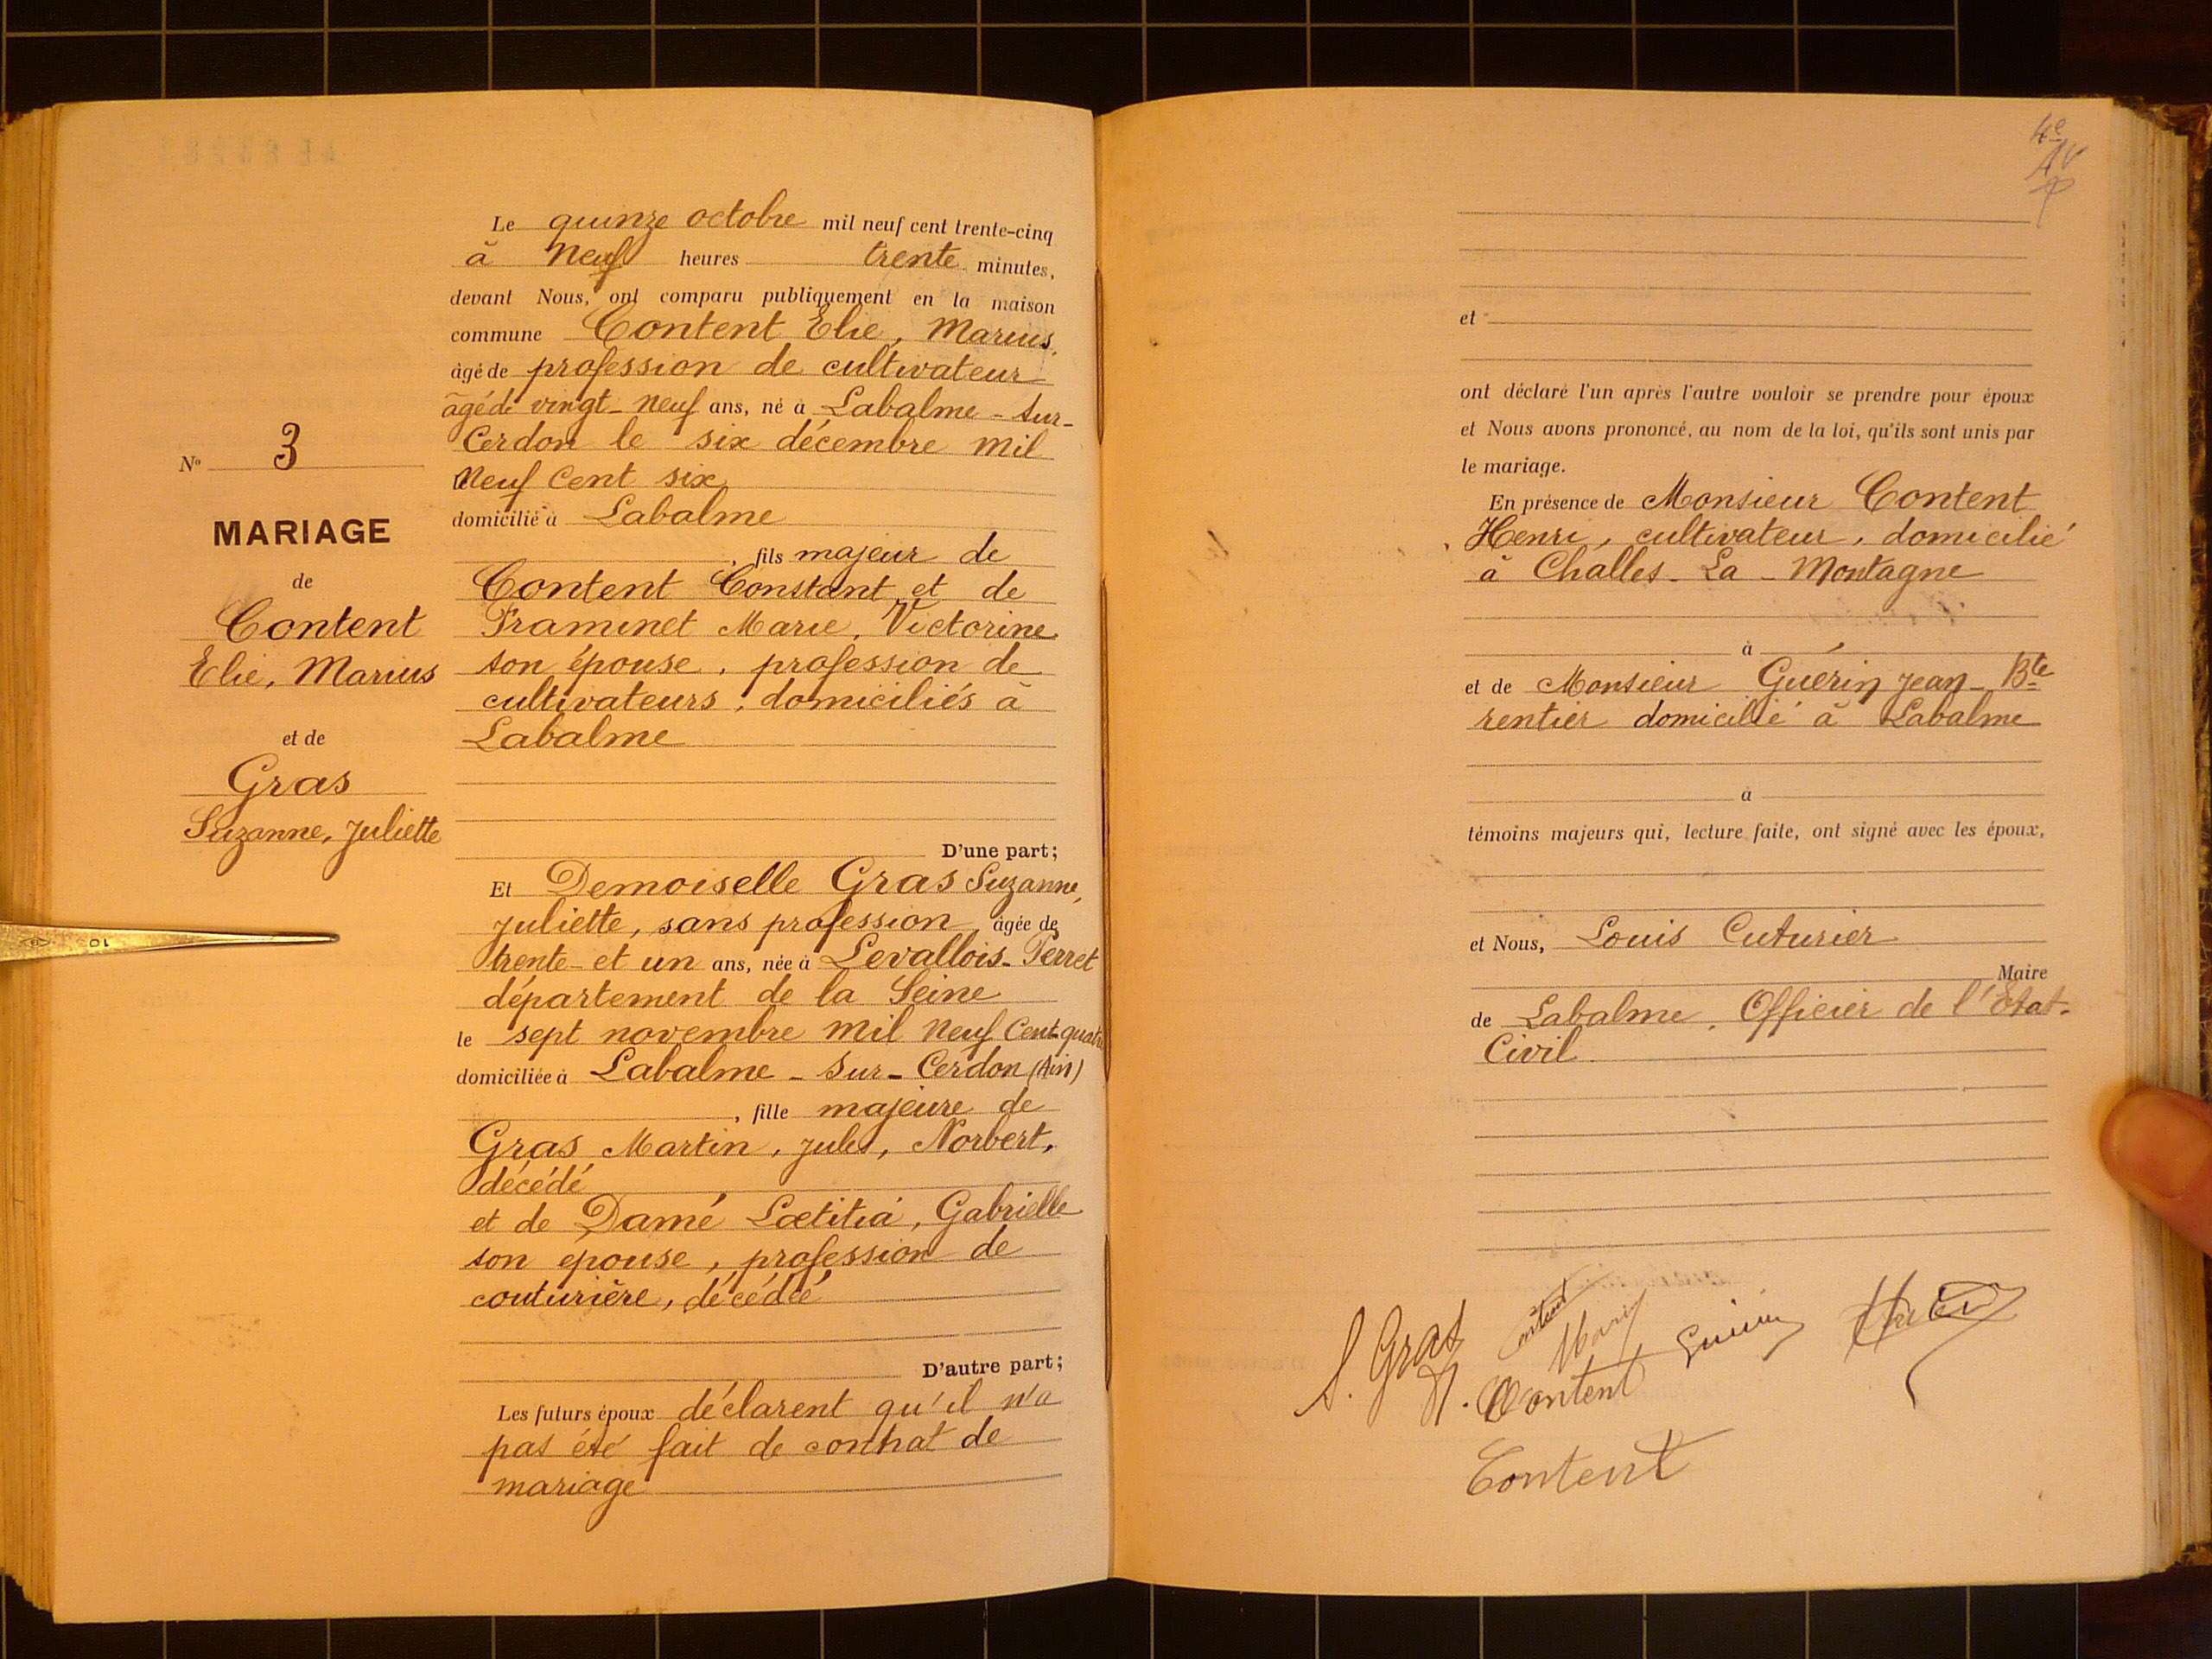 N° 3
MARIAGE
de
Content
Elie, Marius
et de
Gras
Suzanne, Juliette
Le quinze octobre mil neuf cent trente-cinq
à Neuf heures trente minutes,
devant Nous, ont comparu publiquement en la maison
commune Content Elie, Marius,
âgé de profession de cultivateur
âgé de vingt-neuf ans, né à Labalme-sur-
Cerdon le six décembre mil
Neuf Cent six
domicilié à Labalme
, fils majeur de
Content Constant et de
Framinet Marie, Victorine
son épouse, profession de
cultivateurs, domiciliés à
Labalme
D'une part;
Et Demoiselle Gras Suzanne,
Juliette, sans profession, âgée de
trente-et un ans, née à Levallois-Perret
département de la Seine
le sept novembre mil neuf Cent-quatre
domiciliée à Labalme-Sur-Cerdon (Ain)
, fille majeure de
Gras Martin, Jules, Norbert,
décédé
et de Damé Lœtitia, Gabrielle
son epouse, profession de
couturière, décédée
D'autre part;
Les futurs époux déclarent qu'il n'a
pas été fait de contrat de
mariage
4e
et
ont déclaré l'un après l'autre vouloir se prendre pour époux
et Nous avons prononcé, au nom de la loi, qu'ils sont unis par
le mariage.
En présence de Monsieur Content
Henri, cultivateur, domicilié
à Challes-La-Montagne
à
et de Monsieur Guérin Jean-Bte
rentier domicilié à Labalme
à
témoins majeurs qui, lecture faite, ont signé avec les époux,
et Nous, Louis Cuturier
Maire
de Labalme, Officier de l'Etat-
Civil
S. Gras
H. Content
Guérin
Content